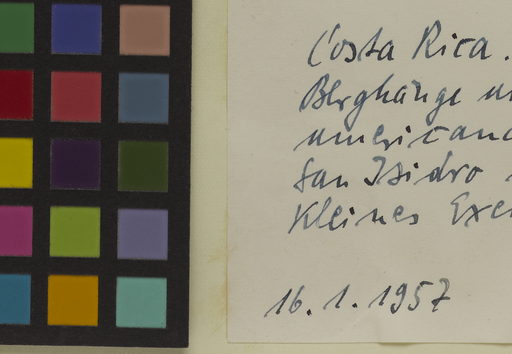 Costa Rica.
Berghänge
americana
San Isidro
Kleines
16.1.1957